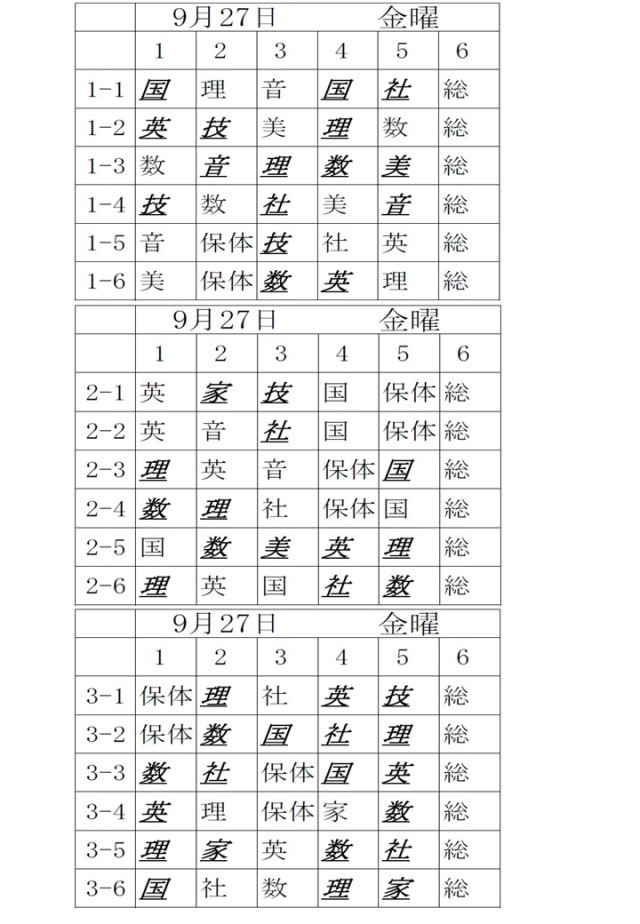 9月27日 金曜
1 2 3 4 5 6
1-1 国 理 音 国 社 総
1-2 英 技 美 理 数 総
1-3 数 音 理 数 美 総
1-4 技 数 社 美 音 総
1-5 音 保体 技 社 英 総
1-6 美 保体 数 英 理 総
9月27日 金曜
1 2 3 4 5 6
2-1 英 家 技 国 保体 総
2-2 英 音 社 国 保体 総
2-3 理 英 音 保体 国 総
2-4 数 理 社 保体 国 総
2-5 国 数 美 英 理 総
2-6 理 英 国 社 数 総
9月27日 金曜
1 2 3 4 5 6
3-1 保体 理 社 英 技 総
3-2 保体 数 国 社 理 総
3-3 数 社 保体 国 英 総
3-4 英 理 保体 家 数 総
3-5 理 家 英 数 社 総
3-6 国 社 数 理 家 総